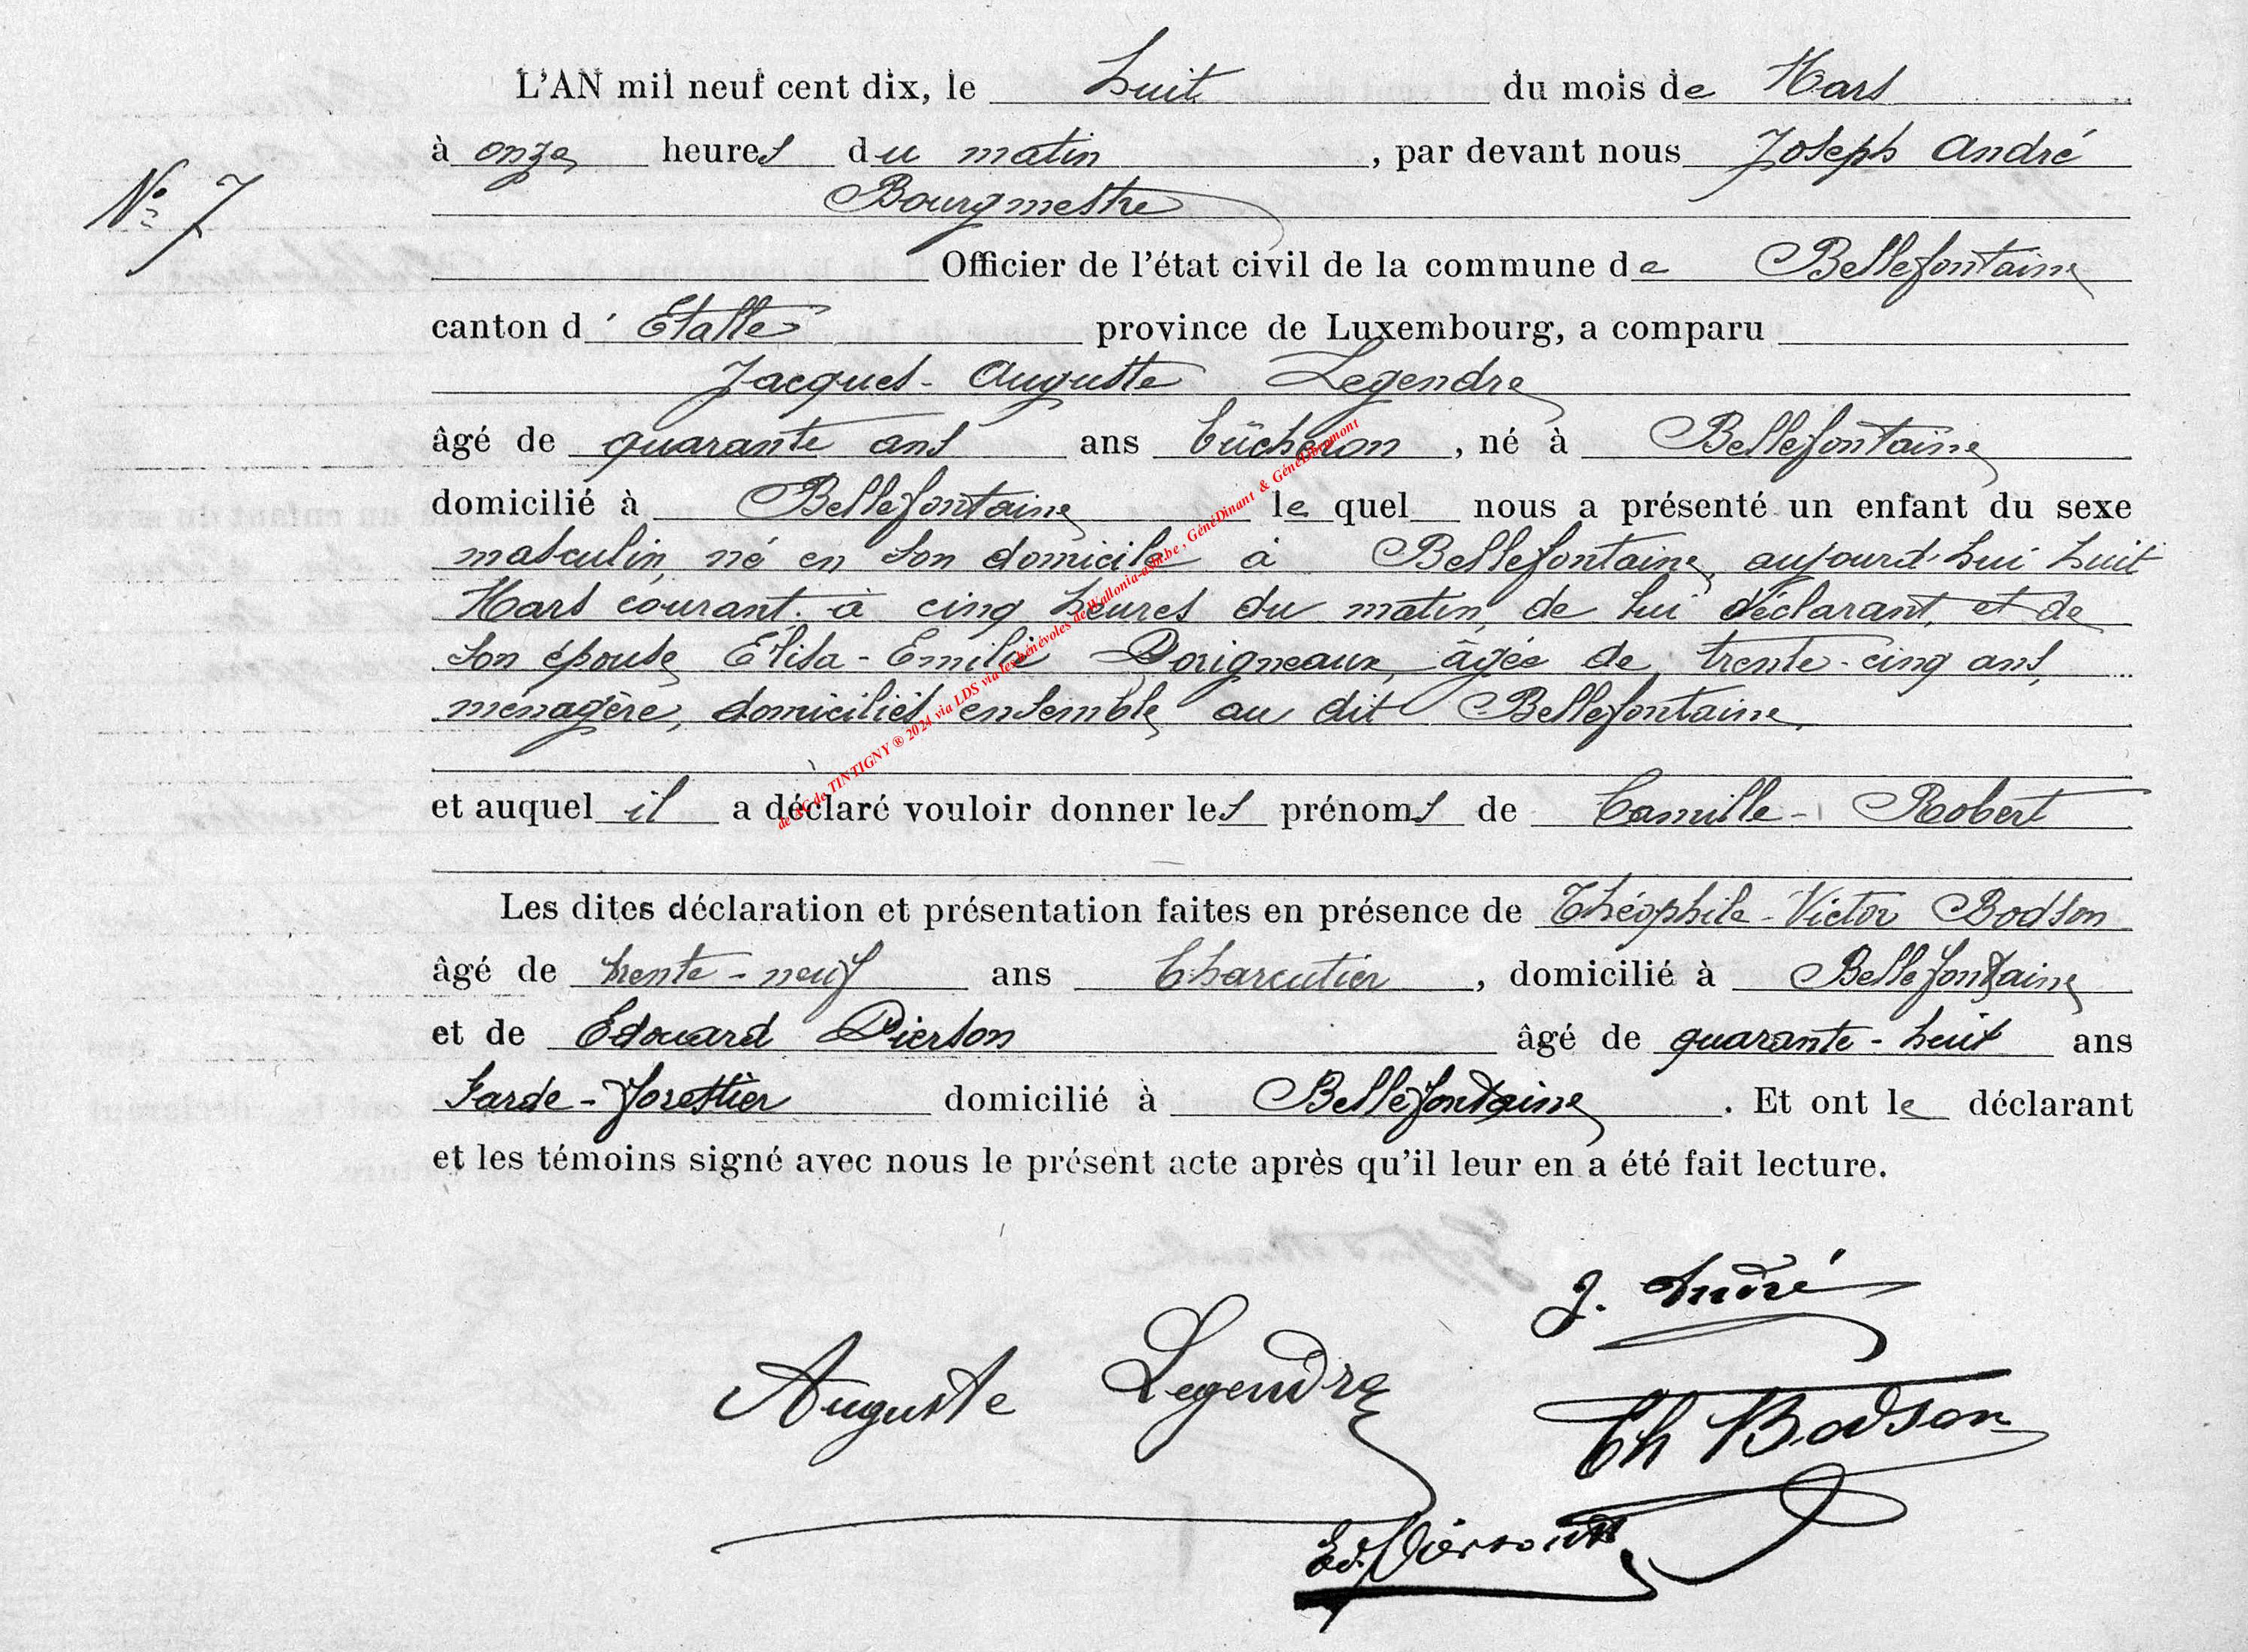 L'AN mil neuf cent dix, le huit du mois de Mars
à onze heures du matin, par devant nous Joseph André
N° 7
Bourgmestre
Officier de l'état civil de la commune de Bellefontaine
canton d'Etalle province de Luxembourg, a comparu
Jacques-Auguste Legendre
âgé de quarante ans ans bûcheron, né à Bellefontaine
domicilié à Bellefontaine lequel nous a présenté un enfant du sexe
masculin, né en son domicile à Bellefontaine, aujourd'hui huit
Mars courant, à cinq heures du matin, de lui déclarant, et de
son épouse Élisa-Emilie Poigneaux, âgée de trente-cinq ans,
ménagère, domiciliés ensemble au dit Bellefontaine,
et auquel il a déclaré vouloir donner les prénoms de Camille-Robert
Les dites déclaration et présentation faites en présence de Théophile-Victor Bodson
âgé de trente-neuf ans Charcutier, domicilié à Bellefontaine
et de Edouard Pierson âgé de quarante-huit ans
Garde-forestier domicilié à Bellefontaine. Et ont le déclarant
et les témoins signé avec nous le présent acte après qu'il leur en a été fait lecture.
J. André
Auguste Legendre
Th Bodson
Ed. Pierson
de AC de TINTIGNY ® 2024 via LDS via les bénévoles de Wallonia-asbl.be, GénéDinant & GénéLibramont